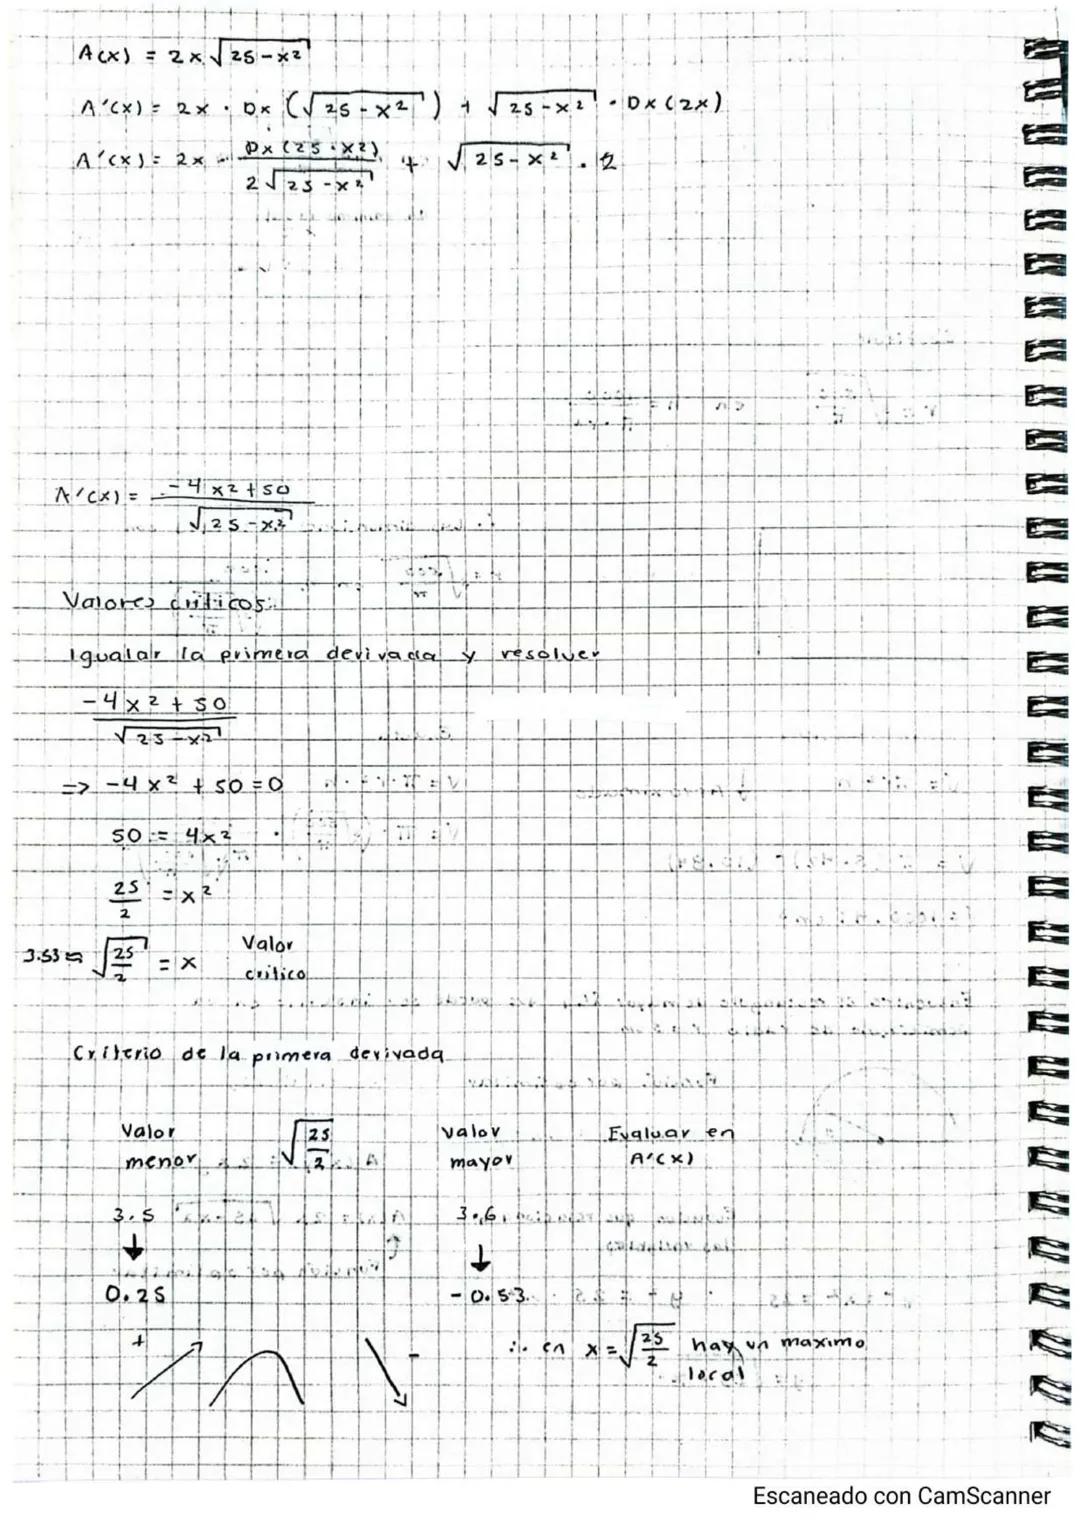 A(x) = 2x √25-x²
A'(x) = 2x · Dx (√25-x²) + √25-x² · Dx(2x)
A'(x) = 2x · Dx(25-x²) / 2√25-x² + √25-x² · 2
A'(x) = -4x²+50 / √25-x²
Valores criticos:
Igualar la primera derivada y resolver
-4x²+50 / √25-x²
=> -4x² + 50 = 0
50 = 4x²
25/2 = x²
3.53 ≈ √25/2 = x Valor
critico
Criterio de la primera derivada
Valor √25/2 valor Evaluar en
menor mayor A'(x)
3.5 3.6
↓ ↓
0.25 -0.53
+ -
∴ en x = √25/2 hay un maximo
local
Escaneado con CamScanner